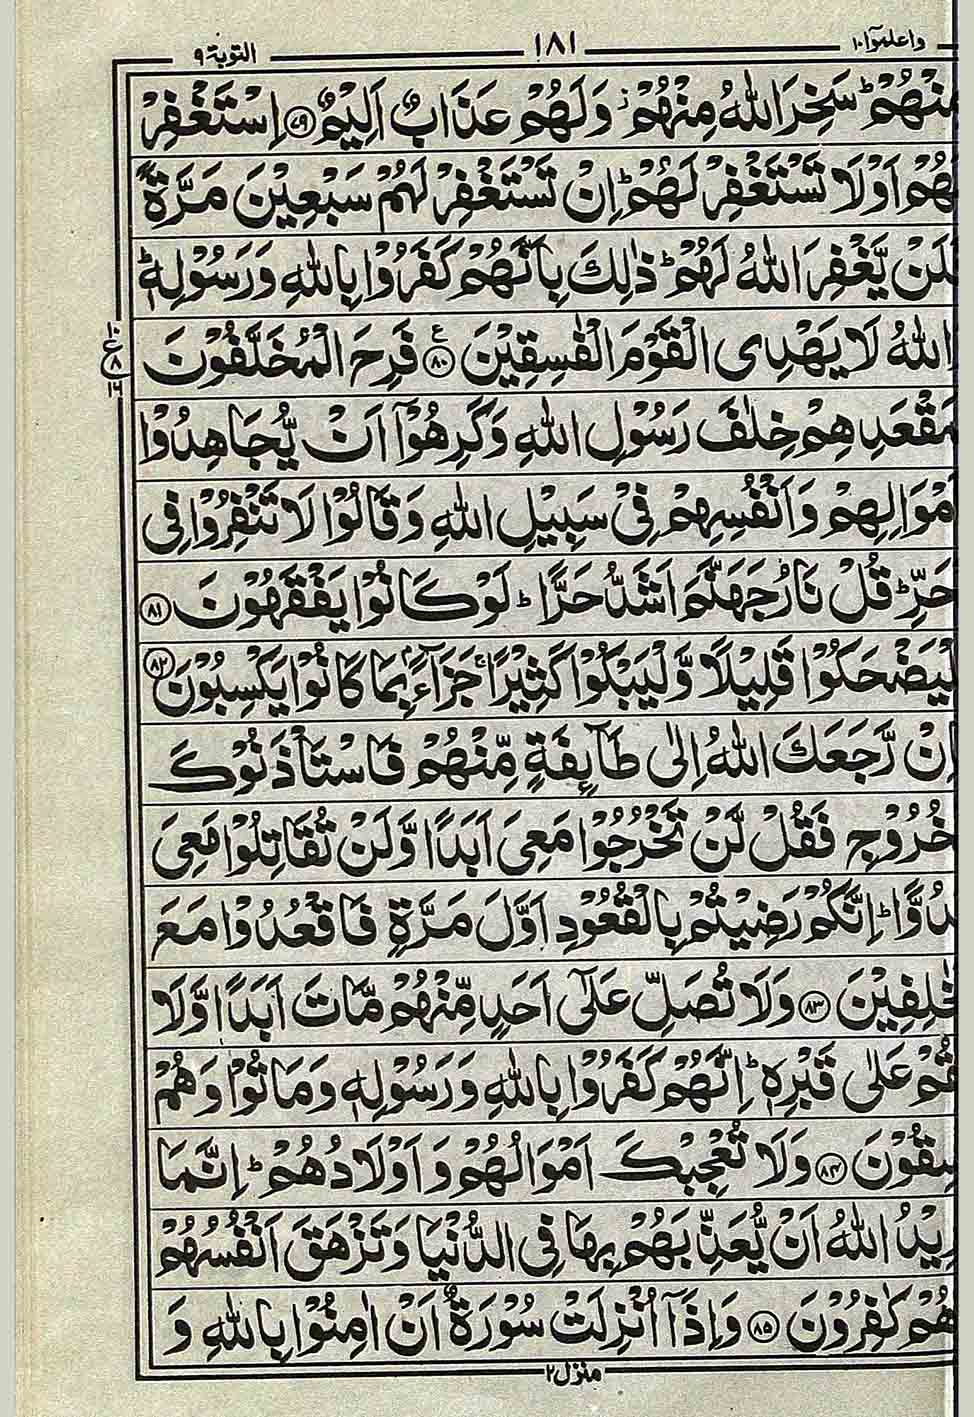 واعلموٓا ١٠ ١٨١ التوبة ٩
مِنْهُمْ ؕ سَخِرَ اللّٰهُ مِنْهُمْ ؗ وَلَهُمْ عَذَابٌ اَلِيْمٌ ﴿۷۹﴾ اِسْتَغْفِرْ
لَهُمْ اَوْلَا تَسْتَغْفِرْ لَهُمْ ؕ اِنْ تَسْتَغْفِرْ لَهُمْ سَبْعِيْنَ مَرَّةً
فَلَنْ يَّغْفِرَ اللّٰهُ لَهُمْ ؕ ذٰلِكَ بِاَنَّهُمْ كَفَرُوْا بِاللّٰهِ وَرَسُوْلِهٖ ؕ
اللّٰهُ لَا يَهْدِى الْقَوْمَ الْفٰسِقِيْنَ ﴿۸۰﴾ فَرِحَ الْمُخَلَّفُوْنَ
بِمَقْعَدِهِمْ خِلٰفَ رَسُوْلِ اللّٰهِ وَكَرِهُوْٓا اَنْ يُّجَاهِدُوْا
بِاَمْوَالِهِمْ وَاَنْفُسِهِمْ فِىْ سَبِيْلِ اللّٰهِ وَقَالُوْا لَا تَنْفِرُوْا فِى
الْحَرِّ ؕ قُلْ نَارُ جَهَنَّمَ اَشَدُّ حَرًّا ؕ لَوْ كَانُوْا يَفْقَهُوْنَ ﴿۸۱﴾
فَلْيَضْحَكُوْا قَلِيْلًا وَّلْيَبْكُوْا كَثِيْرًا ۚ جَزَآءًۢ بِمَا كَانُوْا يَكْسِبُوْنَ ﴿۸۲﴾
فَاِنْ رَّجَعَكَ اللّٰهُ اِلٰى طَآئِفَةٍ مِّنْهُمْ فَاسْتَاْذَنُوْكَ
لِلْخُرُوْجِ فَقُلْ لَّنْ تَخْرُجُوْا مَعِىَ اَبَدًا وَّلَنْ تُقَاتِلُوْا مَعِىَ
عَدُوًّا ؕ اِنَّكُمْ رَضِيْتُمْ بِالْقُعُوْدِ اَوَّلَ مَرَّةٍ فَاقْعُدُوْا مَعَ
الْخٰلِفِيْنَ ﴿۸۳﴾ وَلَا تُصَلِّ عَلٰٓى اَحَدٍ مِّنْهُمْ مَّاتَ اَبَدًا وَّلَا
تَقُمْ عَلٰى قَبْرِهٖ ؕ اِنَّهُمْ كَفَرُوْا بِاللّٰهِ وَرَسُوْلِهٖ وَمَاتُوْا وَهُمْ
فٰسِقُوْنَ ﴿۸۴﴾ وَلَا تُعْجِبْكَ اَمْوَالُهُمْ وَاَوْلَادُهُمْ ؕ اِنَّمَا
يُرِيْدُ اللّٰهُ اَنْ يُّعَذِّبَهُمْ بِهَا فِى الدُّنْيَا وَتَزْهَقَ اَنْفُسُهُمْ
وَهُمْ كٰفِرُوْنَ ﴿۸۵﴾ وَاِذَآ اُنْزِلَتْ سُوْرَةٌ اَنْ اٰمِنُوْا بِاللّٰهِ وَ
منزل ٢